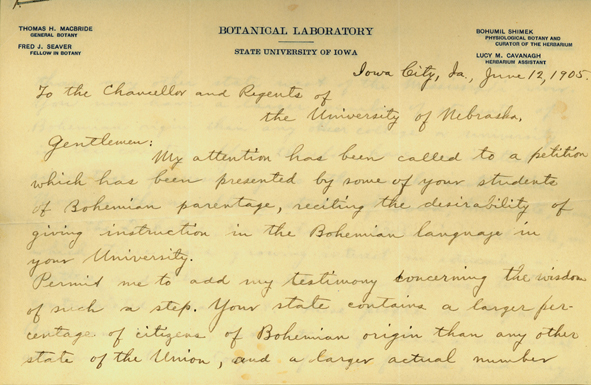 THOMAS H. MACBRIDE
GENERAL BOTANY
FRED J. SEAVER
FELLOW IN BOTANY
BOTANICAL LABORATORY
STATE UNIVERSITY OF IOWA
BOHUMIL SHIMEK
PHYSIOLOGICAL BOTANY AND
CURATOR OF THE HERBARIUM
LUCY M. CAVANAGH
HERBARIUM ASSISTANT
Iowa City, Ia., June 12, 1905.
To the Chancellor and Regents of
the University of Nebraska,
Gentlemen:
My attention has been called to a petition
which has been presented by some of your students
of Bohemian parentage, reciting the desirability of
giving instruction in the Bohemian language in
your University.
Permit me to add my testimony concerning the wisdom
of such a step. Your state contains a larger per-
centage of citizens of Bohemian origin than any other
state of the Union, and a larger actual number